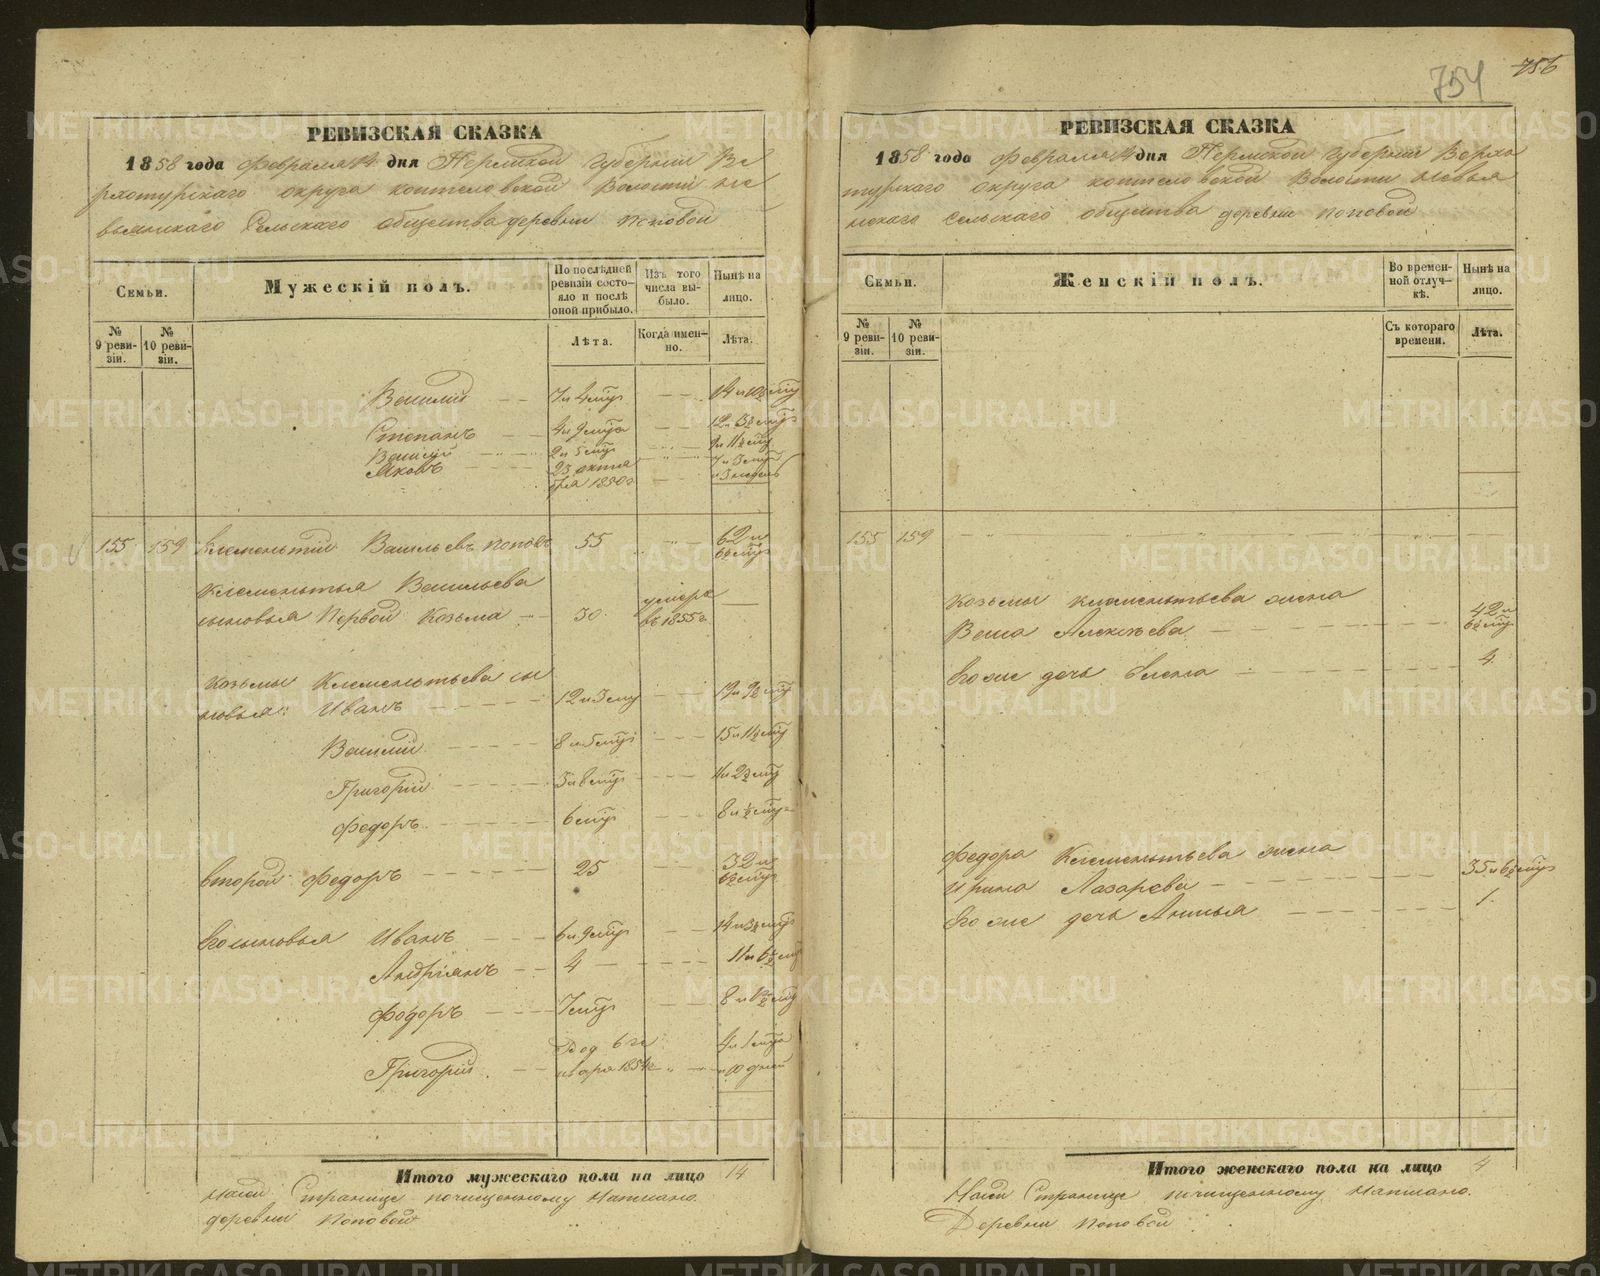 754
756
РЕВИЗСКАЯ СКАЗКА
1858 года февраля 14 дня Пермской губернии Ве
рхотурскаго округа коптеловской Волости не
вьянскаго Сельскаго общества деревни поповой
Семьи.
Мужескій полъ.
По послѣдней ревизіи состо-
яло и послѣ оной прибыло.
Изъ того числа вы-
было.
Нынѣ на лицо.
№ 9 реви-
зіи.
№ 10 реви-
зіи.
Лѣта.
Когда имен-
но.
Лѣта.
Василий 7 и 4 мцъ 14 и 10½ мцъ
Степанъ 4 и 9 мцъ 12 и 3½ мцъ
Василий 2 и 5 мцъ 9 и 11½ мцъ
Яковъ 23 октя 7 и 3 мцъ
бря 1850 г и 3 недель
155 159 Клементий Васильевъ поповъ 55 62 и
6½ мцъ
Клементья Васильева
сыновья Первой Козьма 30 умеръ
въ 1855 г
Козьмы Клементьева сы
новья: Иванъ 12 и 3 мцъ 19 и 9½ мцъ
Василий 8 и 5 мцъ 15 и 11½ мцъ
Григорий 3 и 8 мцъ 11 и 2½ мцъ
Федоръ 6 мцъ 8 и ½ мцъ
второй Федоръ 25 32 и
6½ мцъ
Его сыновья Иванъ 6 и 9 мцъ 14 и 3½ мцъ
Андріянъ 4 11 и 6½ мцъ
Федоръ 7 мцъ 8 и 1½ мцъ
Григорій Род 6 ге 4 и 1 мцъ
нваря 1854 г и 10 дней
Итого мужескаго пола на лицо 14
Насей Странице почищенному Написано.
деревни поповой
РЕВИЗСКАЯ СКАЗКА
1858 года февраля 14 дня Пермской губернии Верхо
турскаго округа коптеловской Волости Невья
нскаго сельскаго общества деревни поповой
Семьи.
Женскій полъ.
Во времен-
ной отлуч-
кѣ.
Нынѣ на лицо.
№ 9 реви-
зіи.
№ 10 реви-
зіи.
Съ котораго времени.
Лѣта.
155 159
Козьмы клементьева жена 42 и
Васса Алексѣева 6½ мцъ
Его же дочь Елена 4
Федора Клементьева жена
Ирина Лазарева 35 и 6½ мцъ
Его же дочь Анисья 1
Итого женскаго пола на лицо 4
Насей Странице почищенному Написано.
Деревни поповой
METRIKI.GASO-URAL.RU